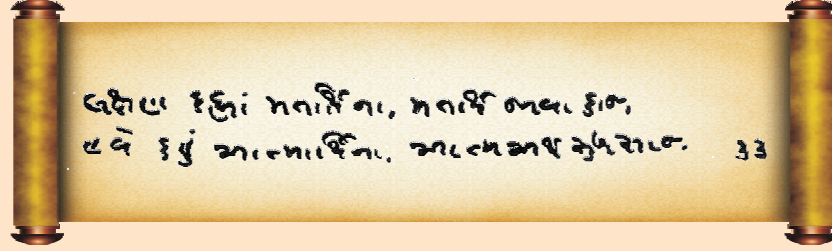 લક્ષણ કહ્યાં મતાર્થીના, મતાર્થ જાવા કાજ,
હવે કહું આત્માર્થીના, આત્મઅર્થ સુખસાજ. ૩૩